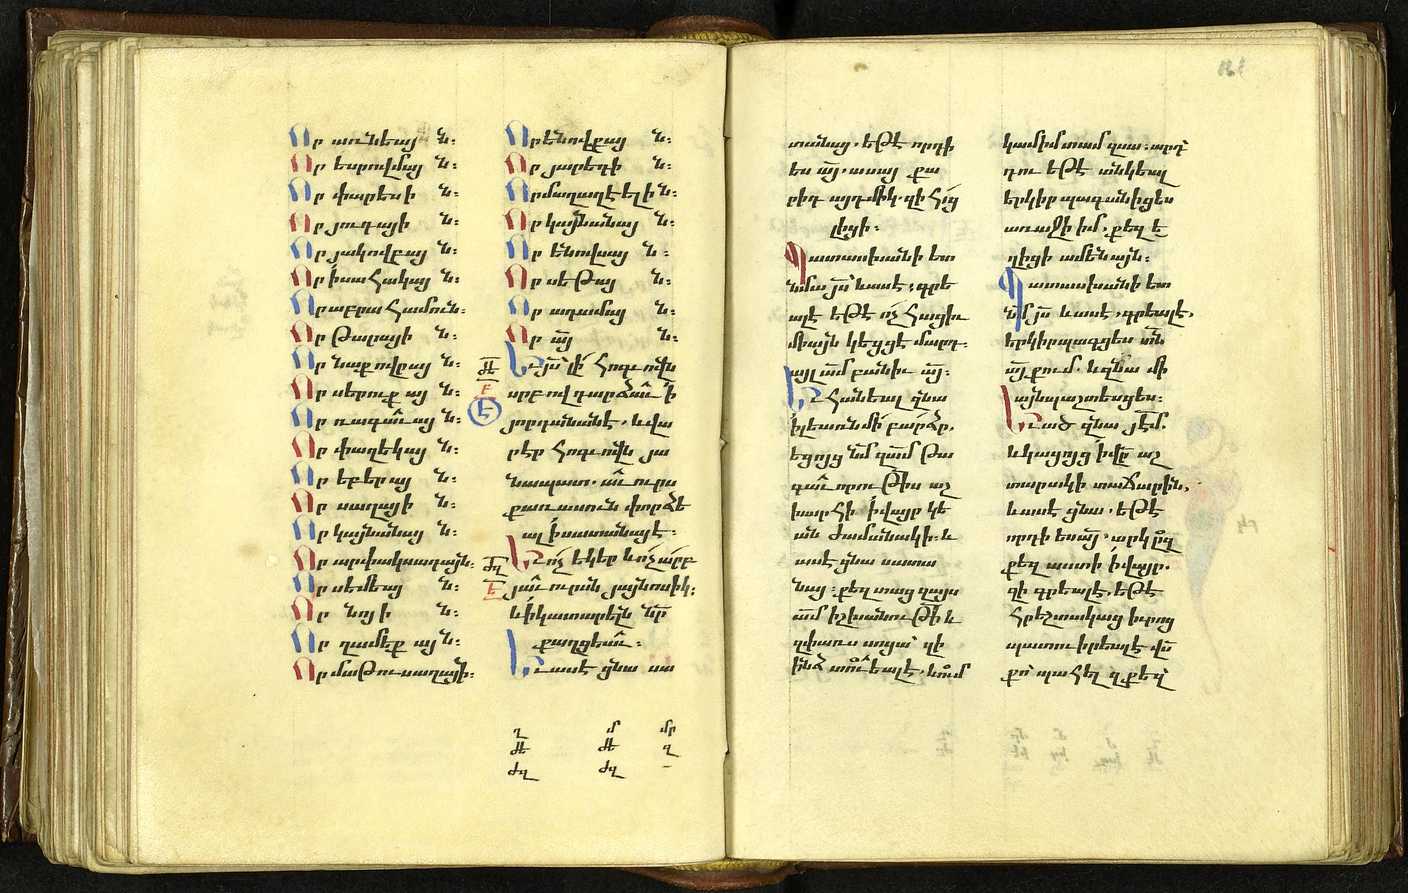 Որ առնեայ ն։
Որ եսրովմայ ն։
Որ փարեսի ն։
Որ յուդայի ն։
Որ յակովբայ ն։
Որ իսահակայ ն։
Որ աբրահամուն։
Որ թարայի ն։
Որ նաքովրայ ն։
Որ սերուքայ ն։
Որ ռագաւայ ն։
Որ փաղեկայ ն։
Որ եբերայ ն։
Որ սաղայի ն։
Որ կայնանայ ն։
Որ արփակսադայն։
Որ սեմեայ ն։
Որ նոյի ն։
Որ ղամեքայ ն։
Որ մաթուսաղայի։
Որ ենովքայ ն։
Որ յարեդի ն։
Որ մաղաղէելի ն։
Որ կայնանայ ն։
Որ ենովսայ ն։
Որ սեթայ ն։
Որ ադամայ ն։
Որ ա՟յ ն։
Եւ յ՟ս լի հոգւովն
սրբով դարձաւ ի
յորդանանէ, և վա
րէր հոգւովն յա
նապատ. աւուրս
քառասուն փորձե
ալ ի սատանայէ։
Եւ ոչ եկեր և ոչ արբ
յաւուրսն յայնոսիկ։
և ի կատարել ն՟ց
քաղցեաւ։
Եւ ասէ ցնա սա
տանայ. եթէ որդի
ես ա՟յ. ասա քա
րիդ այդմիկ. զի հաց
լիցի։
Պատասխանի ետ
նմա յ՟ս և ասէ. գրե
ալ է եթէ ոչ հացիւ
միայն կեցցէ մարդ.
այլ ա՟մ բանիւ ա՟յ։
Եւ հանեալ զնա
ի լեառն մի բարձր.
եցոյց ն՟մ զա՟մ թա
գաւորութիս աշ
խարհի ի վայր կե
ան ժամանակի. և
ասէ ցնա սատա
նայ. քեզ տաց զայս
ա՟մ իշխանութի և
զփառս սոցա՝ զի
ինձ տուեալ է, և ում
կամիմ տամ զսա. արդ՝
դու եթէ անկեալ
երկիր պագանիցես
առաջի իմ, քեզ է
լիցի ամենայն։
Պատասխանի ետ
ն՟մ յ՟ս և ասէ. գրեալ է,
երկիր պագցես տ՟ն
ա՟յ քում. և զնա մի
այն պաշտեսցես։
Եւ ած զնա յե՟մ.
և կացոյց ի վ՟ր աշ
տարակի տաճարին,
և ասէ ցնա. եթէ
որդի ես ա՟յ. արկ զքզ
քեզ աստի ի վայր.
զի գրեալ է, եթէ
հրեշտակաց իւրոց
պատուիրեալ է վ՟ս
քո՝ պահել զքեզ՝